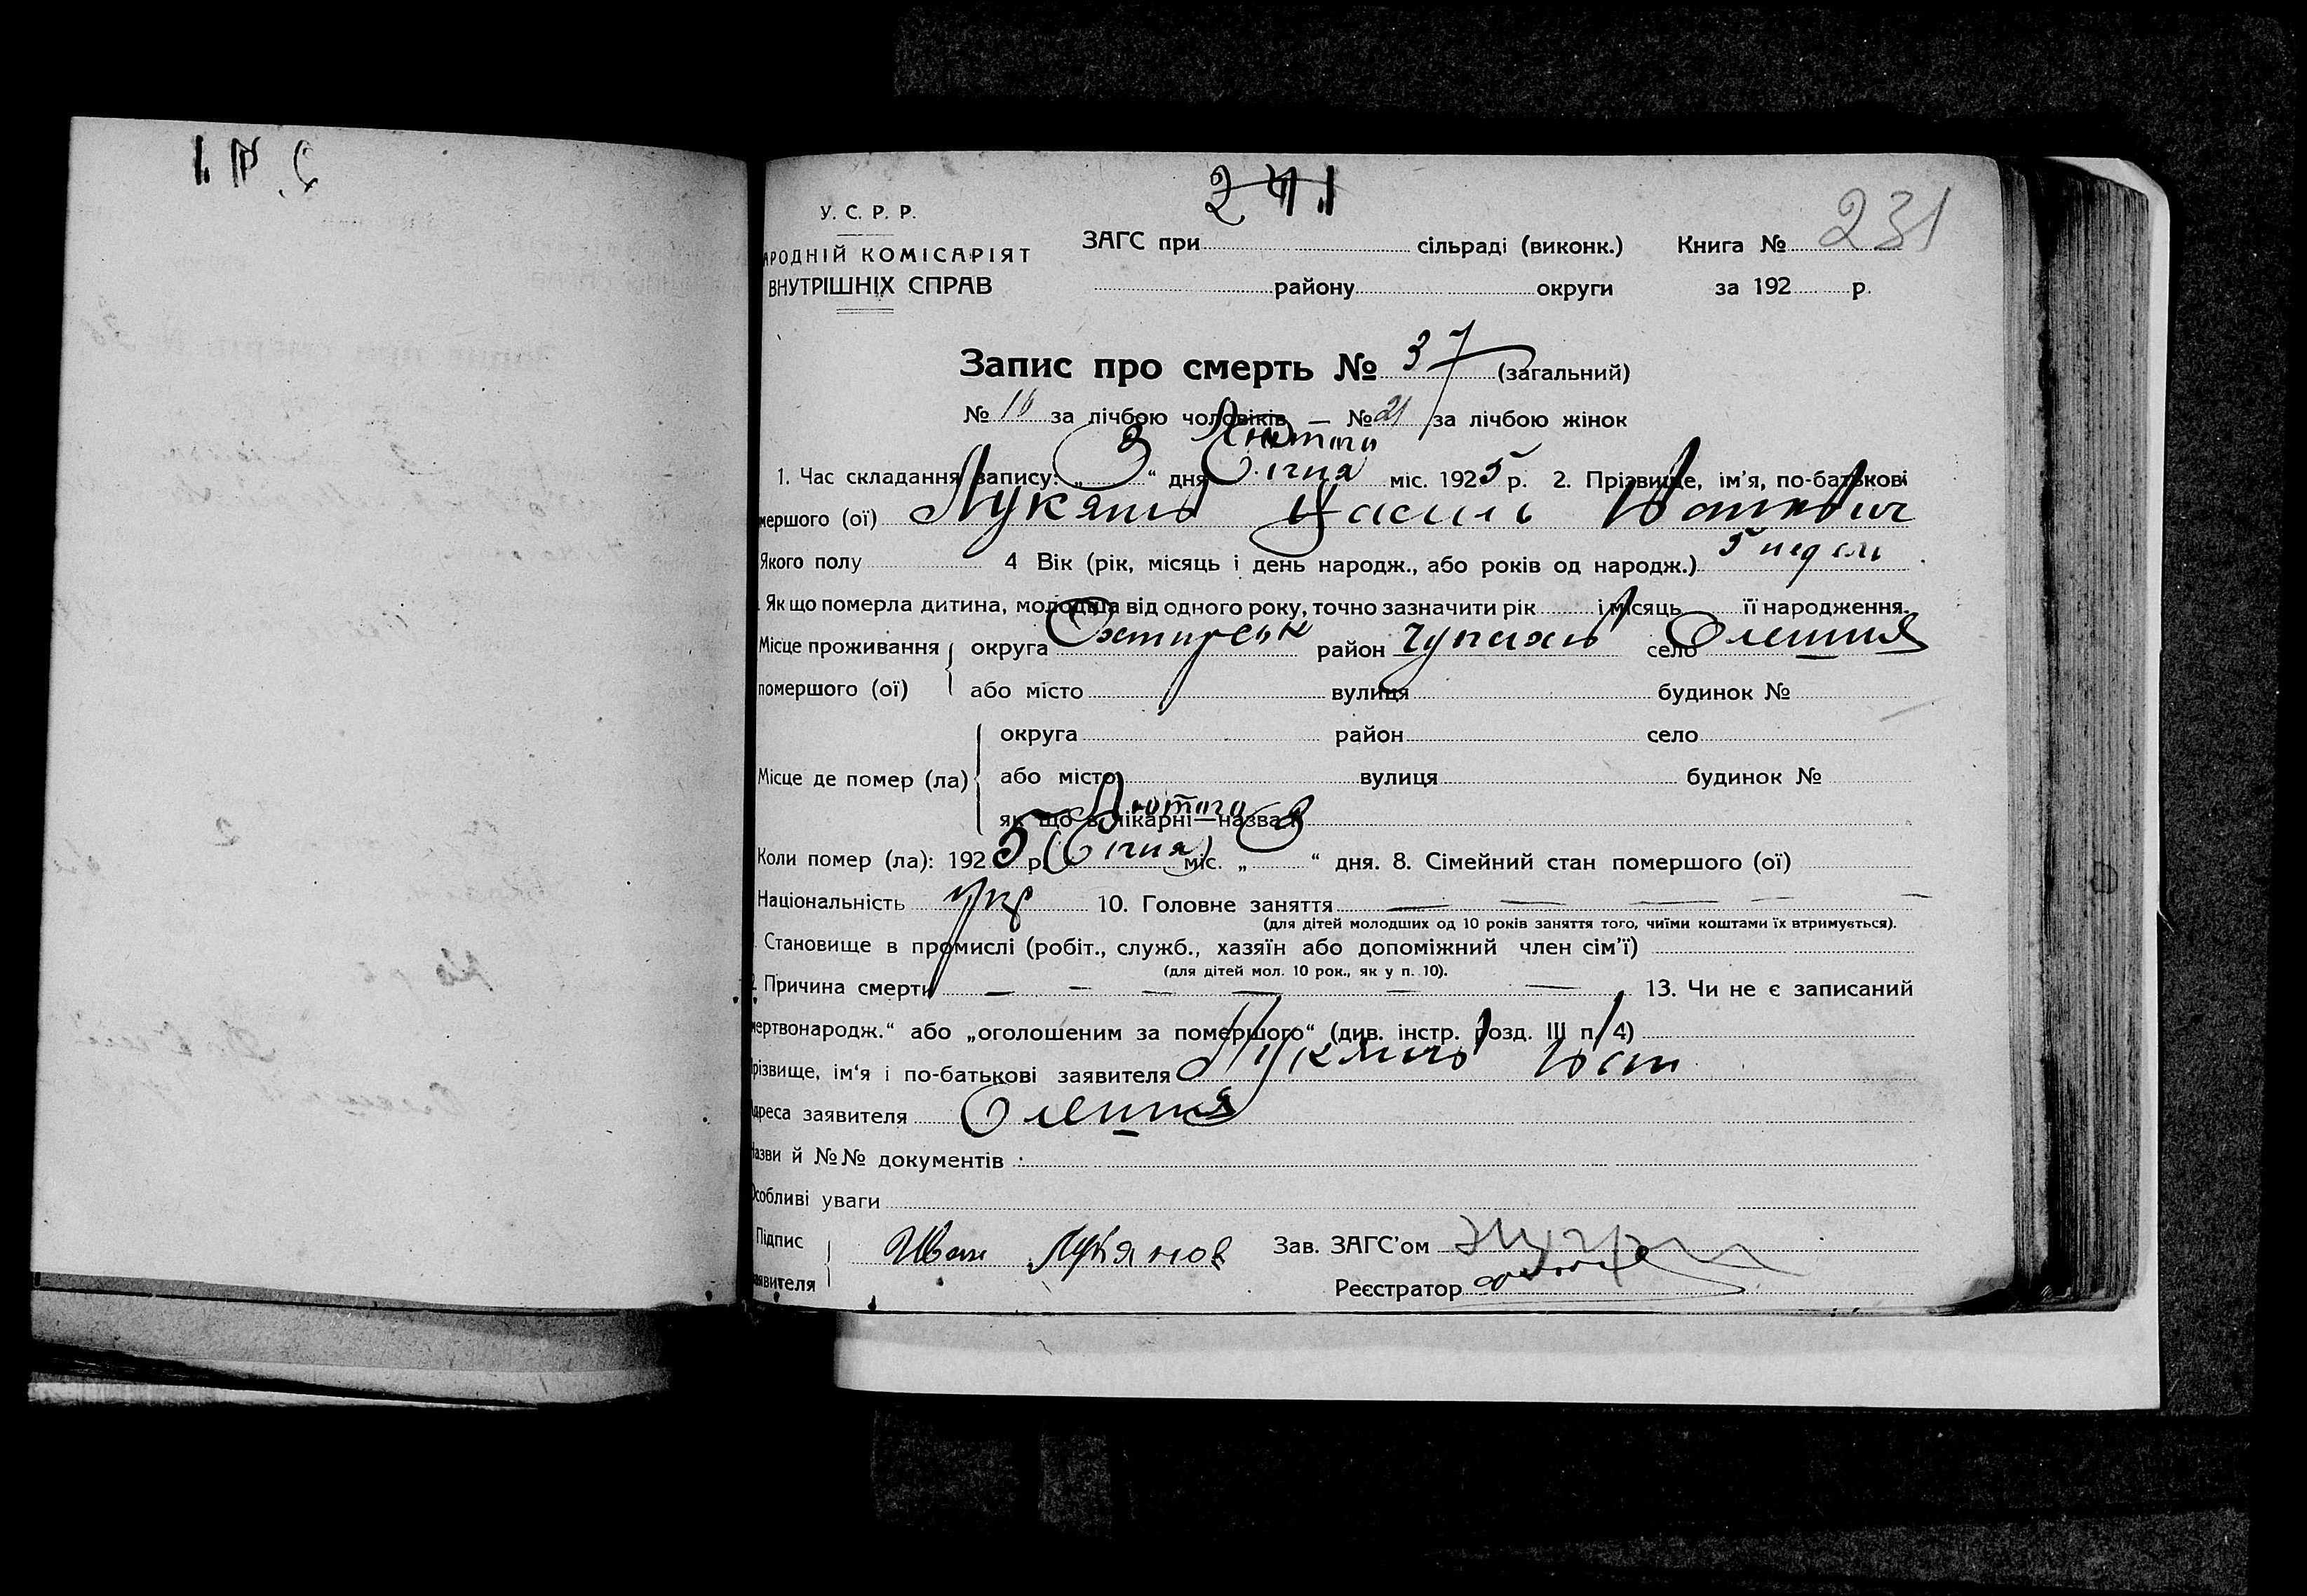 241
У. С. Р. Р.
АРОДНІЙ КОМІСАРІЯТ
ВНУТРІШНІХ СПРАВ
ЗАГС при сільраді (виконк.) Книга № 231
району округи за 192 р.
Запис про смерть № 37 (загальний)
№ 16 за лічбою чоловіків — № 21 за лічбою жінок
Лютого
1. Час складання запису: „3“ дня Січня міс. 1925 р. 2. Прізвище, ім'я, по-батькові
мершого (ої)
Якого полу 4 Вік (рік, місяць і день народж., або років од народж.) 5 недель
Як що померла дитина, молодша від одного року, точно зазначити рік і місяць її народження.
Місце проживання округа Охтирськ район Чупахів село Олешня
помершого (ої) або місто вулиця будинок №
округа район село
Місце де помер (ла) або місто вулиця будинок №
як що в лікарні—назва її
Лютого 3
Коли помер (ла): 1925 р. (Січня) міс. „ “ дня. 8. Сімейний стан помершого (ої)
Національність укр 10. Головне заняття — — — — —
(для дітей молодших од 10 років заняття того, чиїми коштами їх втримується).
Становище в промислі (робіт., служб., хазяїн або допоміжний член сім'ї)
(для дітей мол. 10 рок., як у п. 10).
Причина смерти — — — — — — 13. Чи не є записаний
мертвонародж.“ або „оголошеним за помершого“ (див. інстр. розд. III п. 4)
різвище, ім'я і по-батькові заявителя
Адреса заявителя Олешня
Назви й №№ документів
Особливі уваги
Підпис
заявителя Иван Лукянов
Зав. ЗАГС'ом
Реєстратор